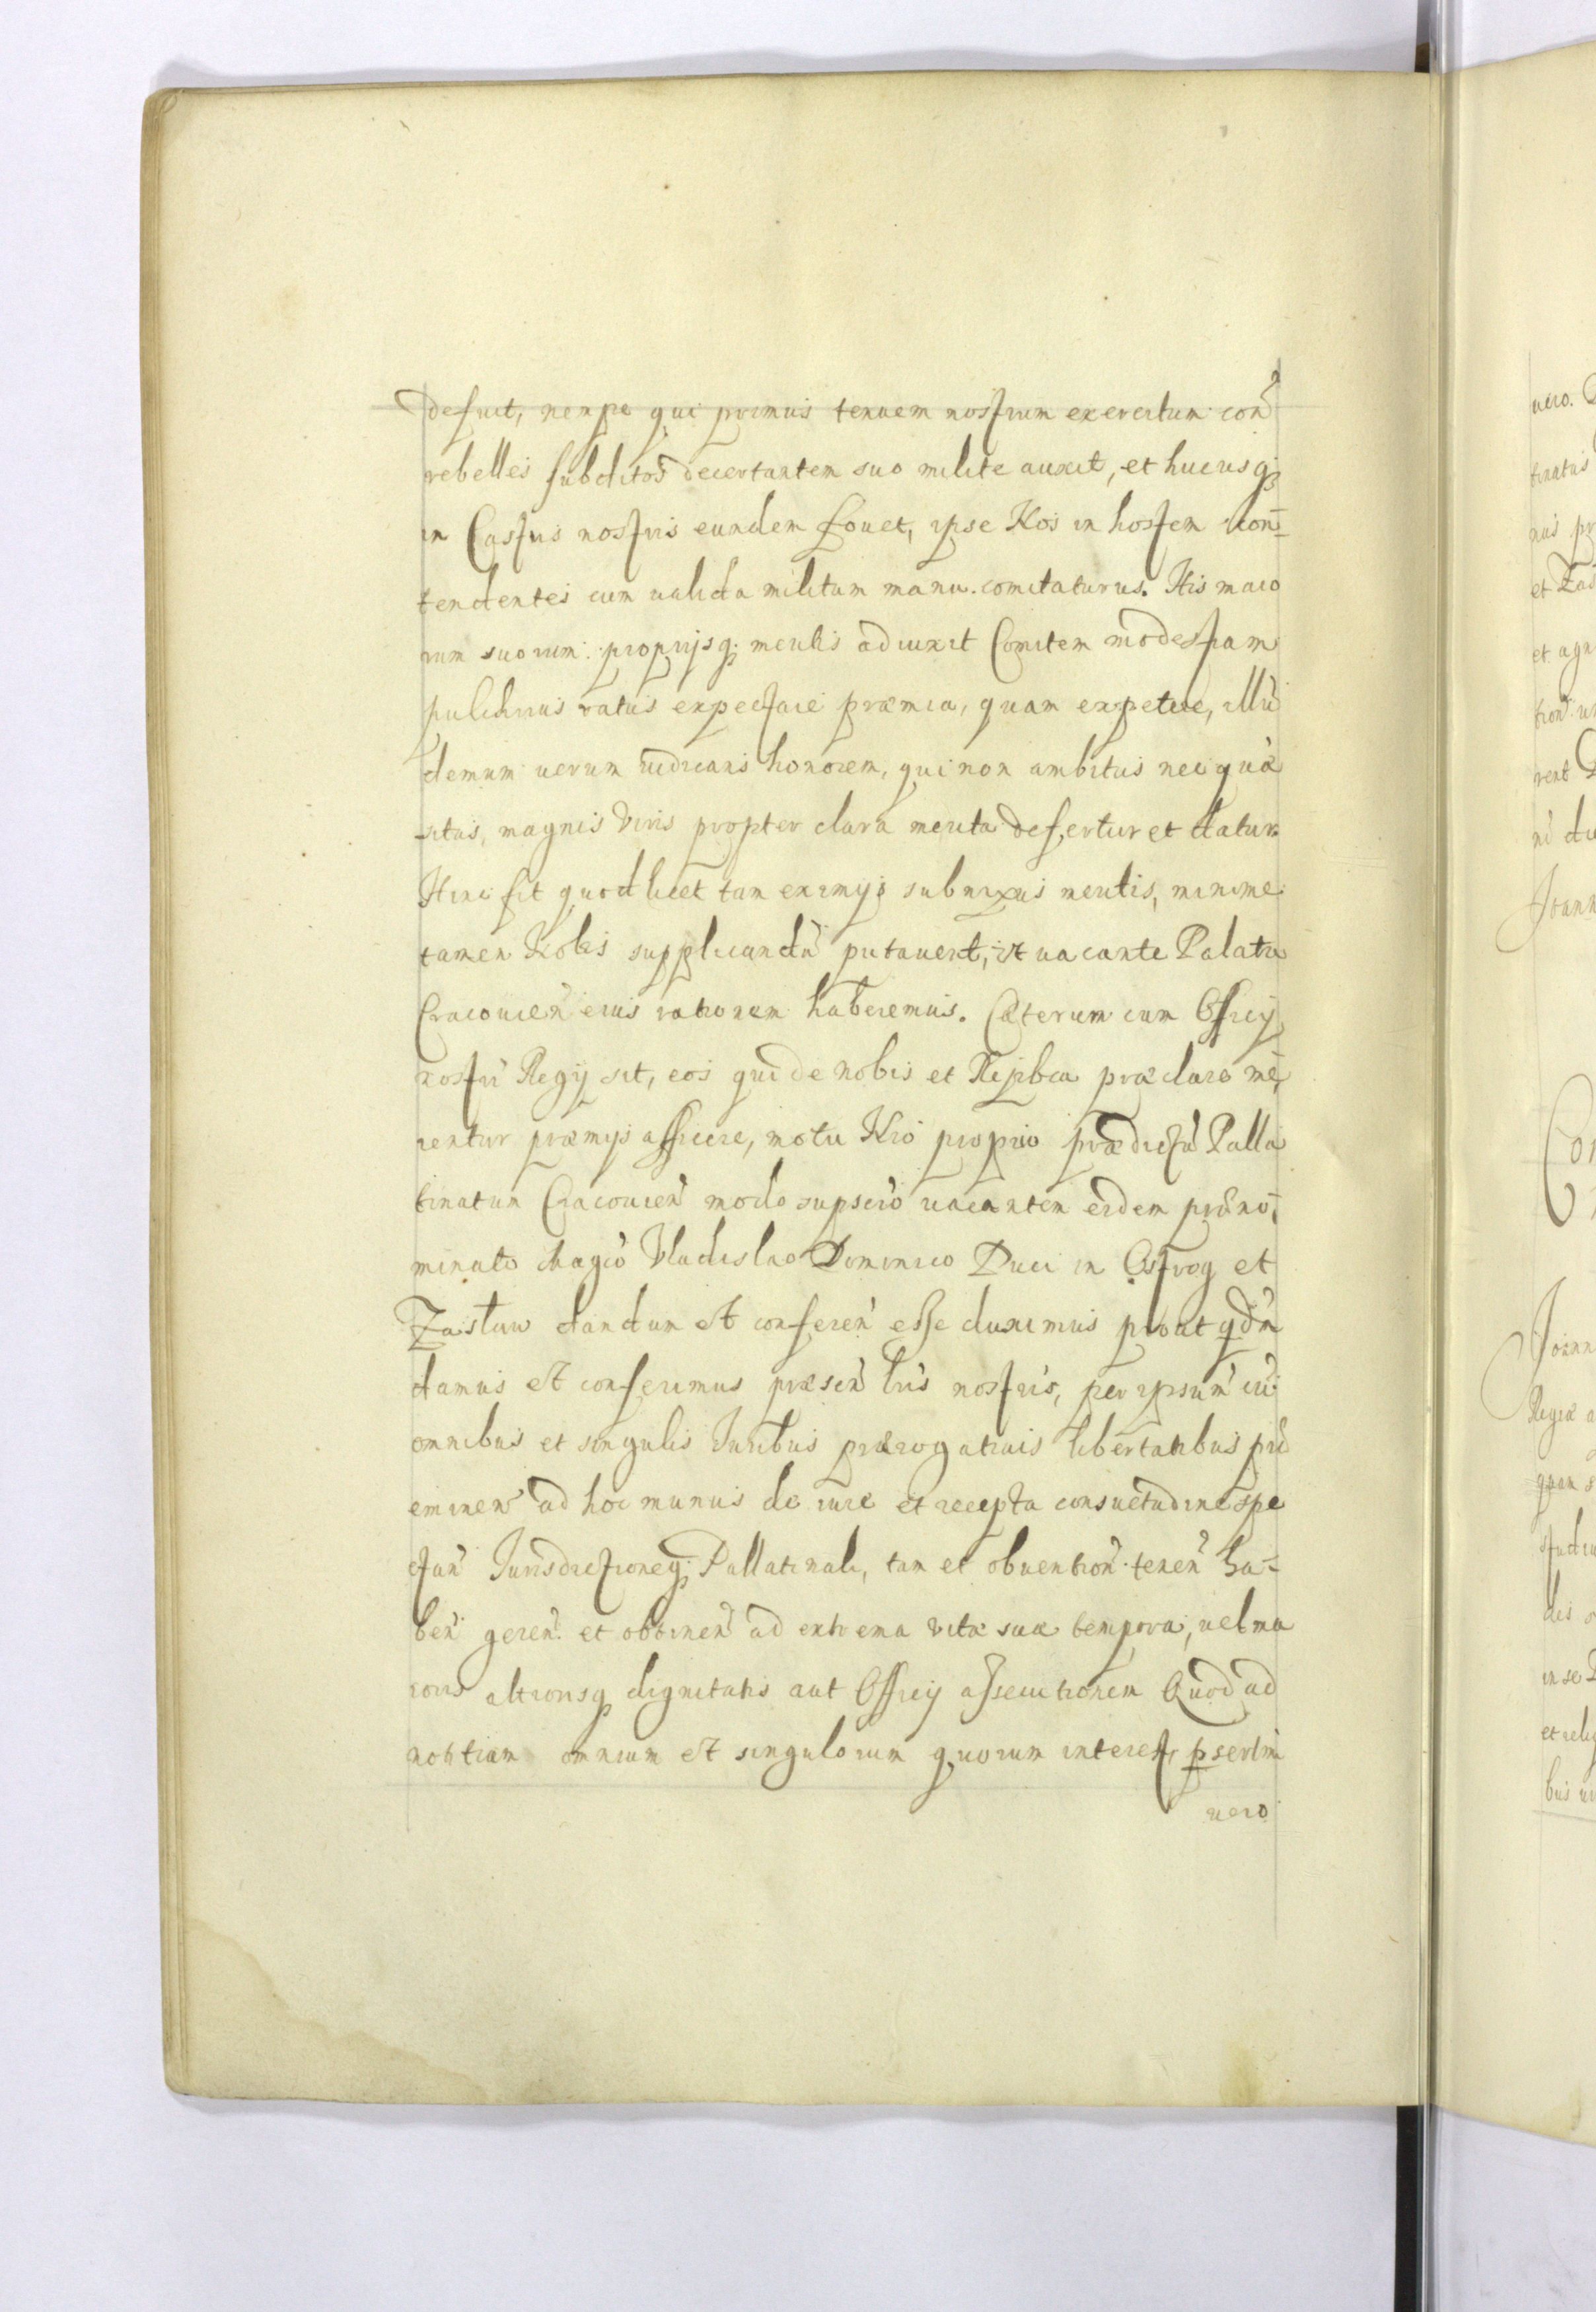 defuit, nempe qui primus tenuem nostrum exercitum con
rebelles subditos decertantem suo milite auxit, et hucusq;
in Castris nostris eundem fouet, ipse Nos in hostem con-
tendentes cum ualida militum manu comitaturus. His maio
rum suorum proprijsq; meritis adiunxit Comitem modestiam
pulchrius ratus expectare præmia, quam expetere, illũ
demum uerum iudicans honorem, qui non ambitus nec quæ
situs, magnis Viris propter clara merita defertur et datur
Hinc fit quod licet tam eximijs subnixus meritis, minime
tamen Nobis supplicandũ putauerit, ut uacante Palatu
Cracouien eius rationem haberemus. Cæterum cum Officij
nostri Regij sit, eos qui de nobis et Repbca præclare me
rentur præmijs afficere, motu Nro proprio prædictũ Palla
tinatum Cracouien modo supscro uacantem eidem præno-
minato Magco Vladislao Dominico Duci in Ostrog et
Zasław dandum et conferen esse duximus prout qdm
damus et conferimus præsen lris nostris, per ipsum cũ
omnibus et singulis Juribus prærogatiuis libertatibus præ
eminen ad hoc munus de iure et recepta consuetudine spe
ctan Jurisdictioneq; Pallatinali, tam et obuention tenen ha-
ben geren et obtinen ad extrema vitæ suæ tempora, uel ma
ioris altiorisq; dignitatis aut Officij assecutionem Quod ad
notitiam omnium et singulorum quorum interest, psertim
uero